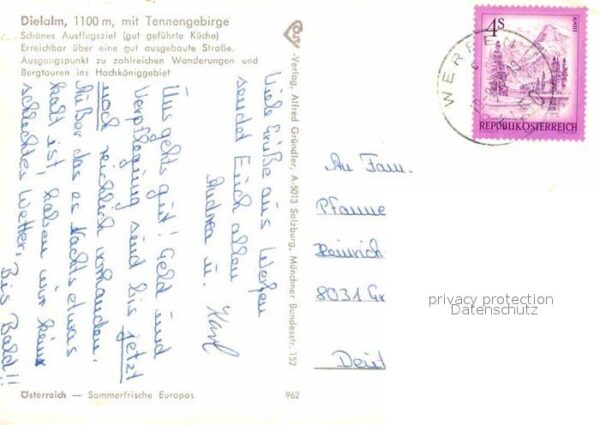 Dielalm, 1100 m, mit Tennengebirge
Schönes Ausflugsziel (gut geführte Küche)
Erreichbar über eine gut ausgebaute Straße.
Ausgangspunkt zu zahlreichen Wanderungen und
Bergtouren ins Hochköniggebiet
Viele Grüße aus Werfen
sendet Euch allen
Andrea u. Karl
Uns gehts gut! Geld und
Verpflegung sind bis jetzt
noch reichlich vorhanden,
Außer das es Nachts etwas
kalt ist, haben wir kein
schlechtes Wetter,
Bis Bald!!
Verlag Alfred Gründler, A-5013 Salzburg, Münchner Bundesstr. 152
Österreich — Sommerfrische Europas
962
WERFEN
4S
ALMSEE
REPUBLIK ÖSTERREICH
An Fam.
Pfanne
Heinrich
8031 Gr
Deut
privacy protection
Datenschutz